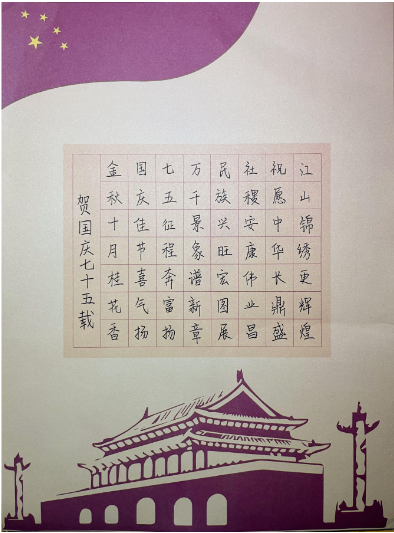 贺国庆七十五载
金秋十月桂花香
国庆佳节喜气扬
七五征程奔富
万千景象谱新章
民族兴旺宏图展
社稷安康伟业昌
祝愿中华长鼎盛
江山锦绣更辉煌